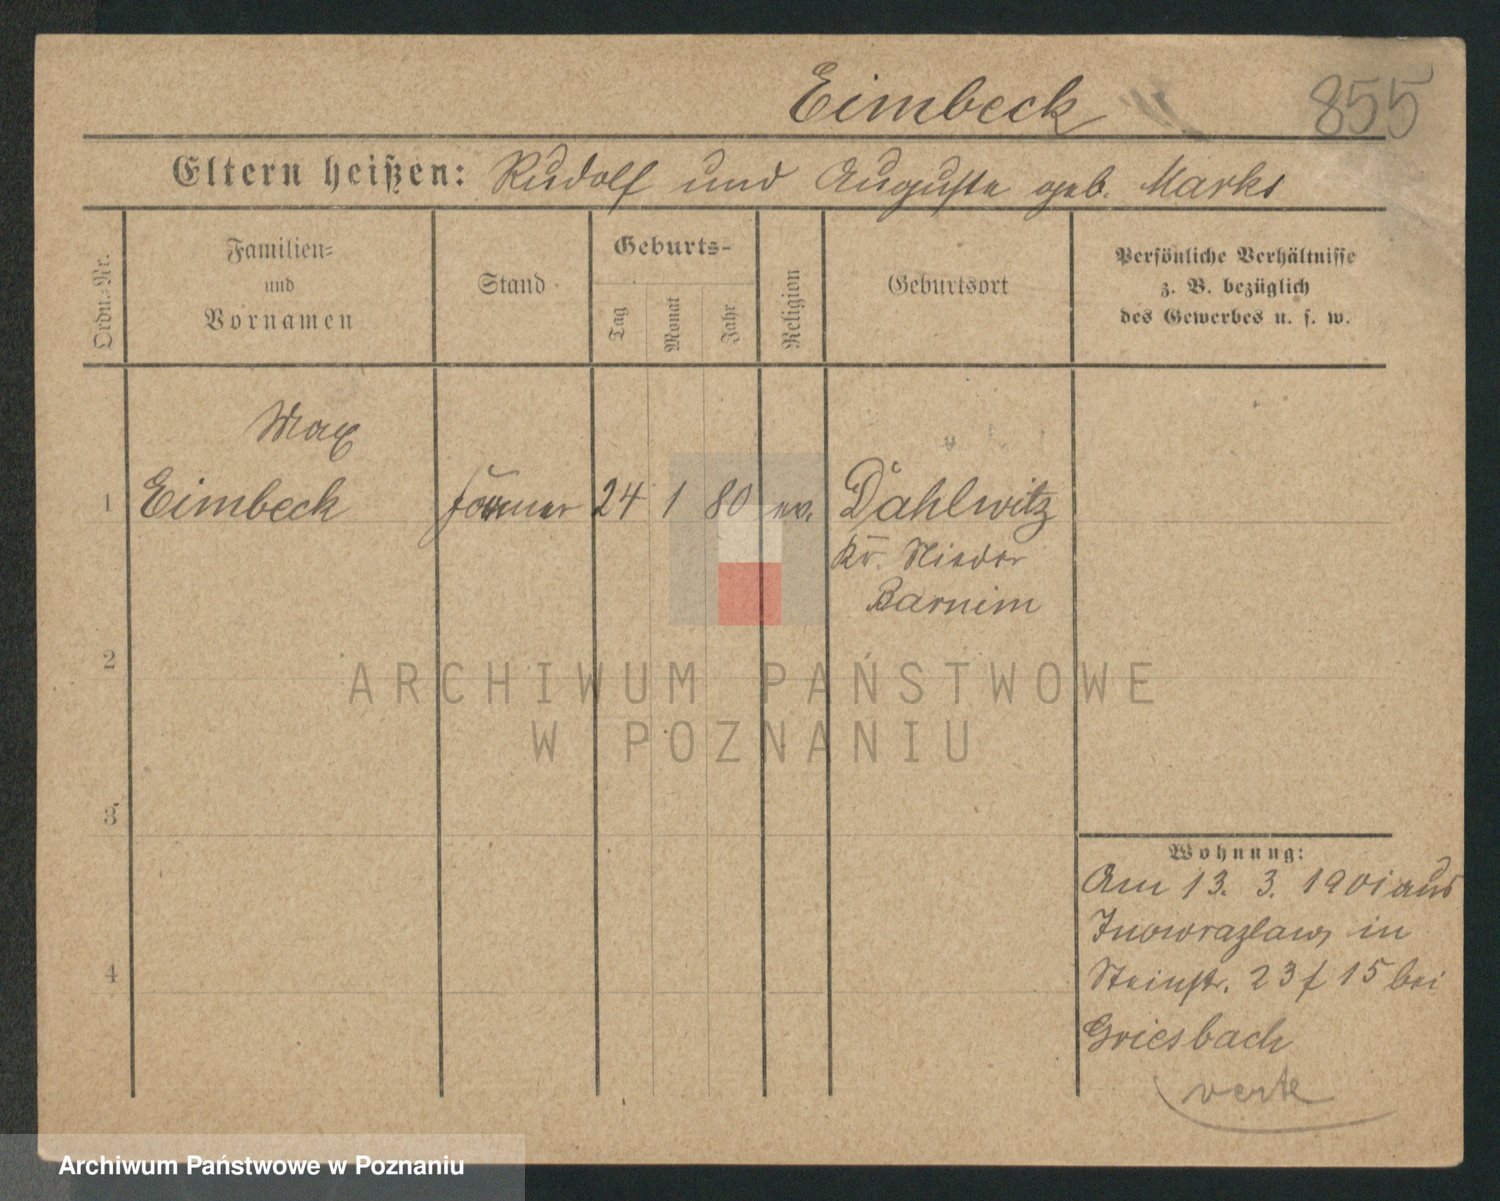 Eimbeck 855
Eltern heißen: Rudolf und Auguste geb. Marks
Ordn.-Nr.
Familien-
und
Vornamen
Stand
Geburts-
Tag
Monat
Jahr
Religion
Geburtsort
Persönliche Verhältnisse
z. B. bezüglich
des Gewerbes u. s. w.
Max
1 Eimbeck Former 24 1 80 ev. Dahlwitz
Kr. Nieder
Barnim
2
3
4
Wohnung:
Am 13. 3. 1901 aus
Inowrazlaw in
Steinstr. 23 f 15 bei
Griesbach
verte
ARCHIWUM PAŃSTWOWE
W POZNANIU
Archiwum Państwowe w Poznaniu